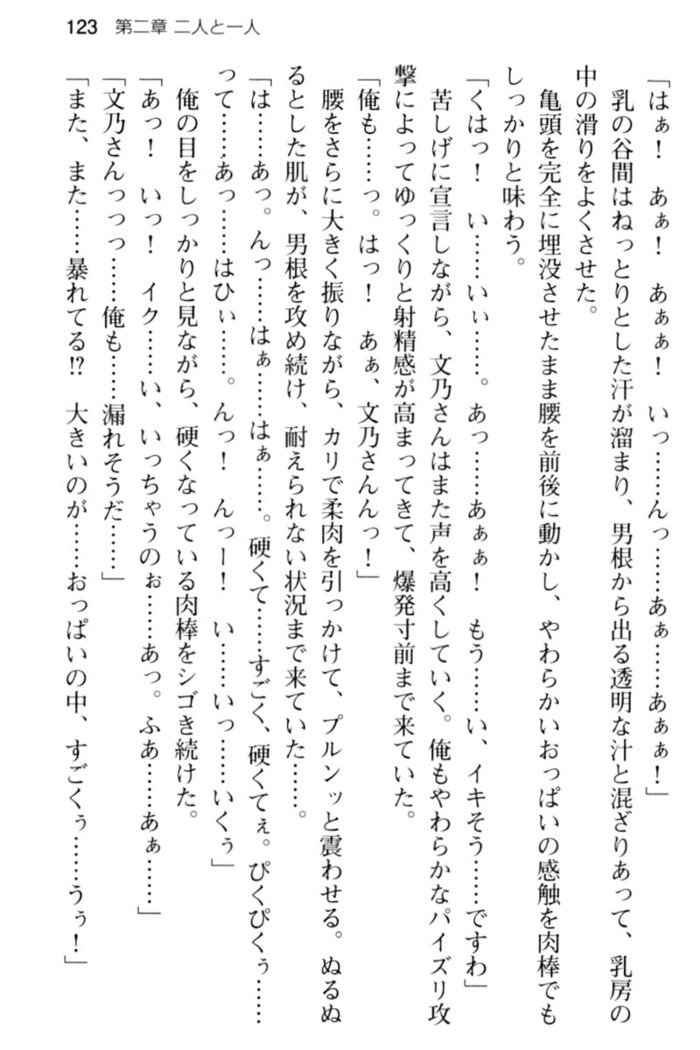 123 第二章 二人と一人
「はぁ！　あぁ！　あぁぁ！　いっ……んっ……あぁ……あぁぁ！」
乳の谷間はねっとりとした汗が溜まり、男根から出る透明な汁と混ざりあって、乳房の
中の滑りをよくさせた。
亀頭を完全に埋没させたまま腰を前後に動かし、やわらかいおっぱいの感触を肉棒でも
しっかりと味わう。
「くはっ！　い……いぃ……。あっ……あぁぁ！　もう……い、イキそう……ですわ」
苦しげに宣言しながら、文乃さんはまた声を高くしていく。俺もやわらかなパイズリ攻
撃によってゆっくりと射精感が高まってきて、爆発寸前まで来ていた。
「俺も……っ。はっ！　あぁ、文乃さんんっ！」
腰をさらに大きく振りながら、カリで柔肉を引っかけて、プルンッと震わせる。ぬるぬ
るとした肌が、男根を攻め続け、耐えられない状況まで来ていた……。
「は……あっ。んっ……はぁ……はぁ……。硬くて……すごく、硬くてぇ。ぴくぴくぅ……
って……あっ……はひぃ……。んっ！　んっー！　い……いっ……いくぅ」
俺の目をしっかりと見ながら、硬くなっている肉棒をシゴき続けた。
「あっ！　いっ！　イク……い、いっちゃうのぉ……あっ。ふあ……あぁ……」
「文乃さんっっっ……俺も……漏れそうだ……」
「また、また……暴れてる!?　大きいのが……おっぱいの中、すごくぅ……うぅ！」